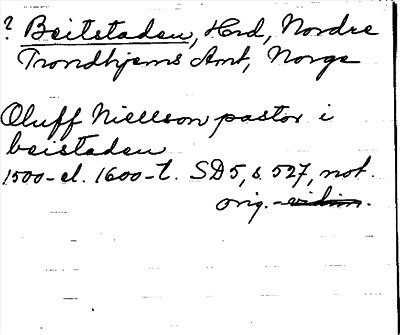 ? Beitstaden, Hrd, Nordre
Trondhjems Amt, Norge
Oluff Niellson pastor i
beistaden
1500- el. 1600-t. SD5, s. 527, not.
orig. - vidim.